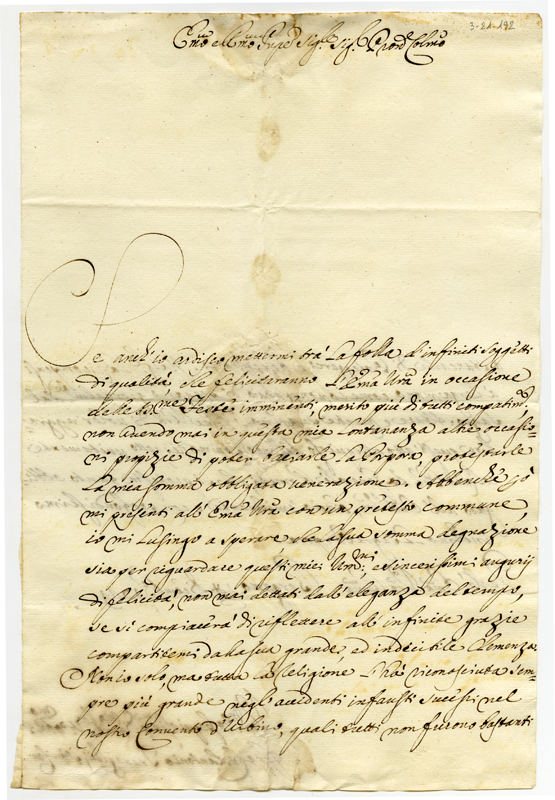 3-21-192
Emo e Rmo Sigre Sig. Pron Colmo
Se anch'io ardisco mettermi trà la folla d'infiniti soggetti
di qualità, che feliciteranno l'Ema Vra in occasione
delle SSme Feste imminenti, merito più di tutti compatimto,
non avendo mai in questa mia lontananza altre occasio=
ni propizie di poter baciarle la Porpora, protestarle
la mia somma obbligata venerazione. Abbenche io
mi presenti all'Ema Vra con un pretesto commune,
io mi lusingo a sperare che la sua somma degnazione
sia per riguardare questi miei Umi, e sincerissimi augurij
di felicità, non mai dettati dall'eleganza del tempo,
se si compiacerà di riflettere all'infinite grazie
compartitemi dalla sua grande, ed indicibile Clemenza.
Non io solo, ma tutta la Religione l'hà riconosciuta sem=
pre più grande negl'accidenti infausti sucessi nel
nostro Convento d'Urbino, quali tutti non furono bastanti